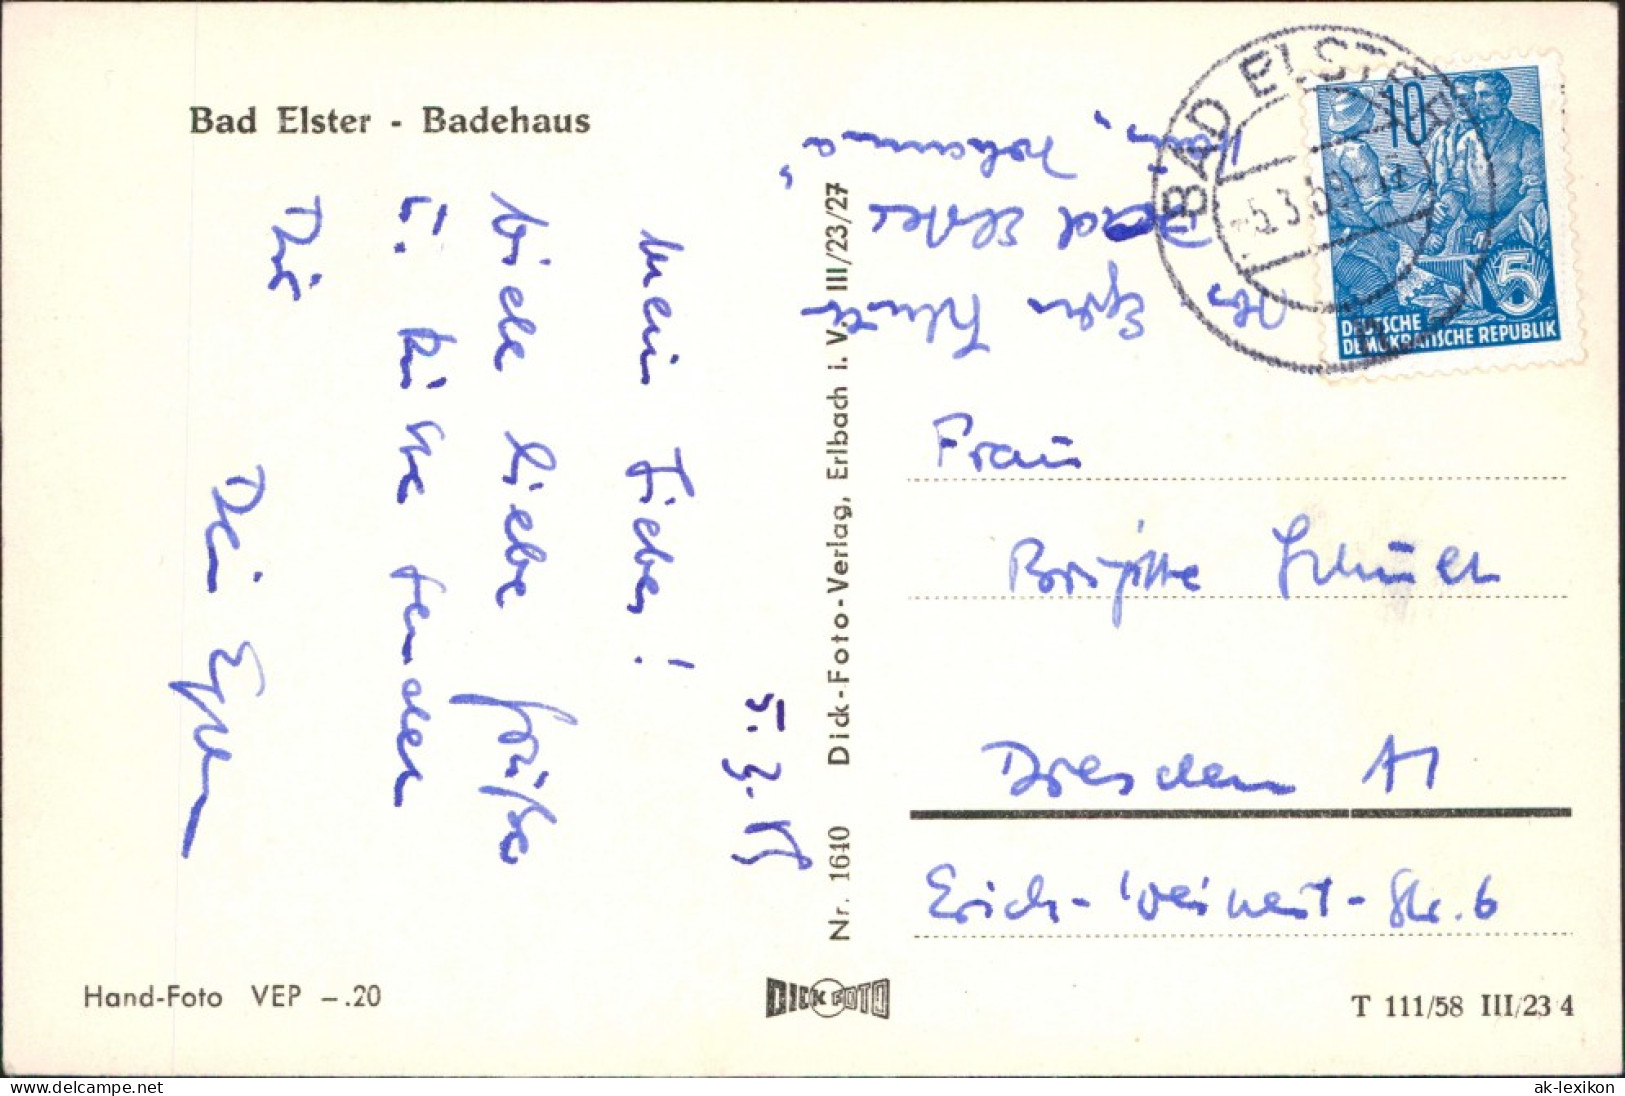 Bad Elster - Badehaus
5.3.59
Mein Lieber!
viele liebe Grüße
u. Küße sendet
Dir
Dein Egon
Hand-Foto VEP -.20
Nr. 1640 Dick-Foto-Verlag, Erlbach i. V. III/23/27
DICK FOTO
Bad Elster
Haus „Johanna“
BAD ELSTER
-5.3.59-17
10
5
DEUTSCHE
DEMOKRATISCHE REPUBLIK
Frau
Brigitte
Dresden A1
Erich-Weinert-Str. 6
T 111/58 III/23 4
www.delcampe.net
ak-lexikon